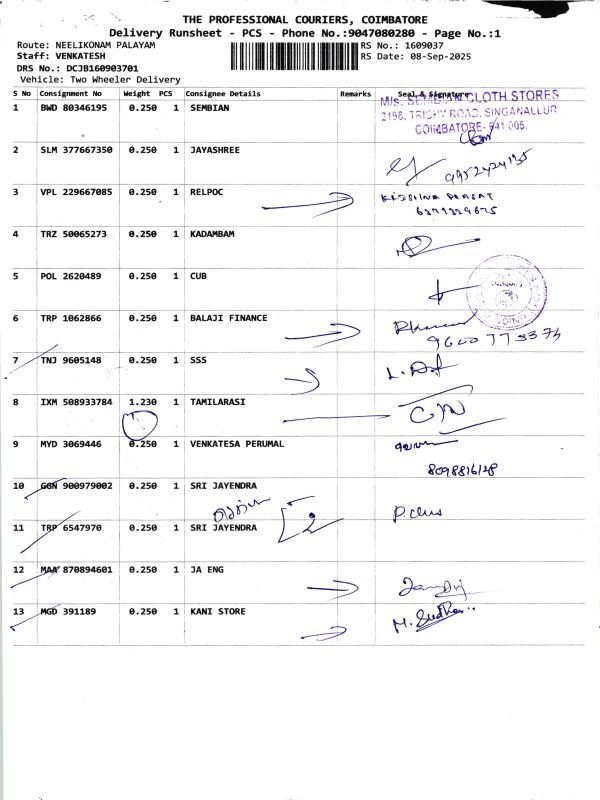 THE PROFESSIONAL COURIERS, COIMBATORE
Delivery Runsheet - PCS - Phone No.:9047080280 - Page No.:1
Route: NEELIKONAM PALAYAM
RS No.: 1609037
Staff: VENKATESH
RS Date: 08-Sep-2025
DRS No.: DCJB160903701
Vehicle: Two Wheeler Delivery
S No Consignment No Weight PCS Consignee Details Remarks Seal & Signature
M/s. SEMBIAN CLOTH STORES
2198, TRICHY ROAD, SINGANALLUR
COIMBATORE- 641 005.
1 BWD 80346195 0.250 1 SEMBIAN
2 SLM 377667350 0.250 1 JAYASHREE
9952424135
3 VPL 229667085 0.250 1 RELPOC
KRISHNA PRASAT
6379329675
4 TRZ 50065273 0.250 1 KADAMBAM
5 POL 2620489 0.250 1 CUB
6 TRP 1062866 0.250 1 BALAJI FINANCE
9600773374
7 TNJ 9605148 0.250 1 SSS
8 IXM 508933784 1.230 1 TAMILARASI
9 MYD 3069446 0.250 1 VENKATESA PERUMAL
8098816148
10 GGN 900979002 0.250 1 SRI JAYENDRA
11 TRP 6547970 0.250 1 SRI JAYENDRA
12 MAA 870894601 0.250 1 JA ENG
13 MGD 391189 0.250 1 KANI STORE